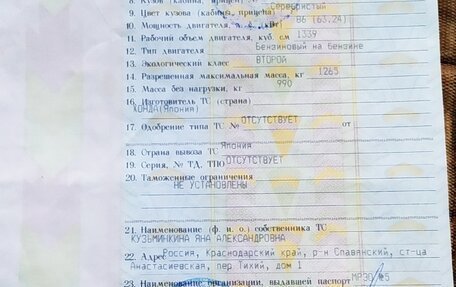 8. Кузов (кабина, прицеп) №
9. Цвет кузова (кабины, прицепа) Серебристый
10. Мощность двигателя, л. с. (кВт) 86 (63.24)
11. Рабочий объем двигателя, куб. см 1339
12. Тип двигателя Бензиновый на бензине
13. Экологический класс ВТОРОЙ
14. Разрешенная максимальная масса, кг 1265
15. Масса без нагрузки, кг 990
16. Изготовитель ТС (страна)
ХОНДА(Япония)
17. Одобрение типа ТС № ОТСУТСТВУЕТ от
18. Страна вывоза ТС Япония
19. Серия, № ТД, ТПО ОТСУТСТВУЕТ
20. Таможенные ограничения
НЕ УСТАНОВЛЕНЫ
21. Наименование (ф. и. о.) собственника ТС
КУЗЬМИНКИНА ЯНА АЛЕКСАНДРОВНА
22. Адрес Россия, Краснодарский край, р-н Славянский, ст-ца
Анастасиевская, пер. Тихий, дом 1
23. Наименование организации, выдавшей паспорт МРЭО №5